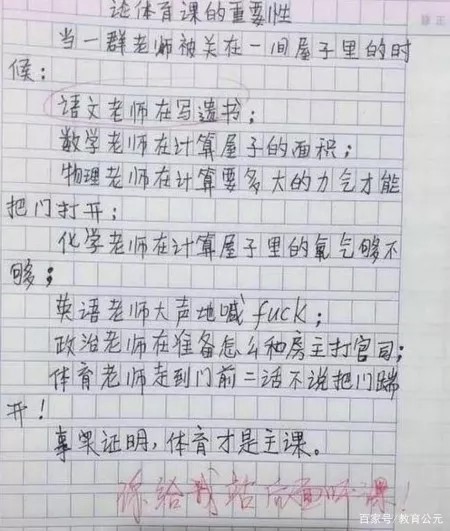 论体育课的重要性
当一群老师被关在一间屋子里的时
候：
语文老师在写遗书；
数学老师在计算屋子的面积；
物理老师在计算要多大的力气才能
把门打开；
化学老师在计算屋子里的氧气够不
够；
英语老师大声地喊fuck；
政治老师在准备怎么和房主打官司；
体育老师走到门前二话不说把门踹
开！
事实证明，体育才是主课。
你给我站后面听课！
百家号/教育公元